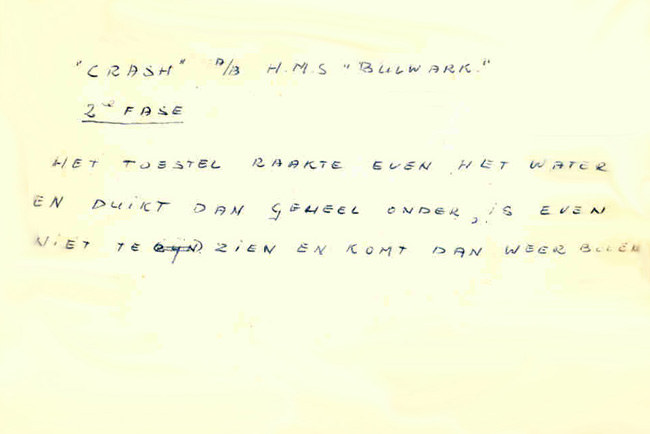 "CRASH" A/B H.M.S "BULWARK."
2de FASE
HET TOESTEL RAAKTE EVEN HET WATER
EN DUIKT DAN GEHEEL ONDER, IS EVEN
NIET TE ZIEN EN KOMT DAN WEER BOVEN